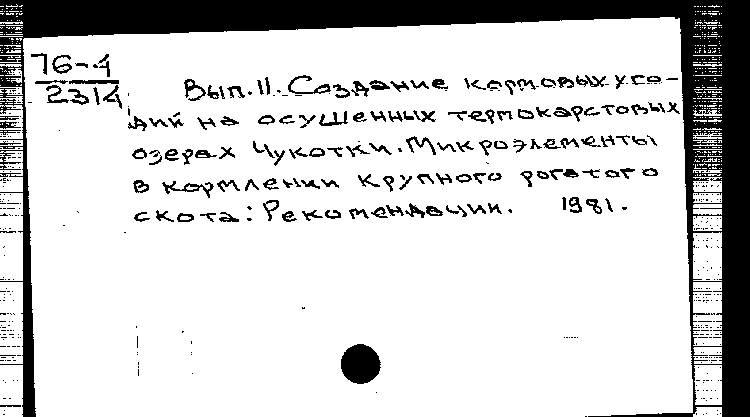 76-4
2314
Вып. 11. Создание кормовых уго-
дий на осушенных термокарстовых
озерах Чукотки. Микроэлементы
в кормлении крупного рогатого
скота: Рекомендации. 1981.